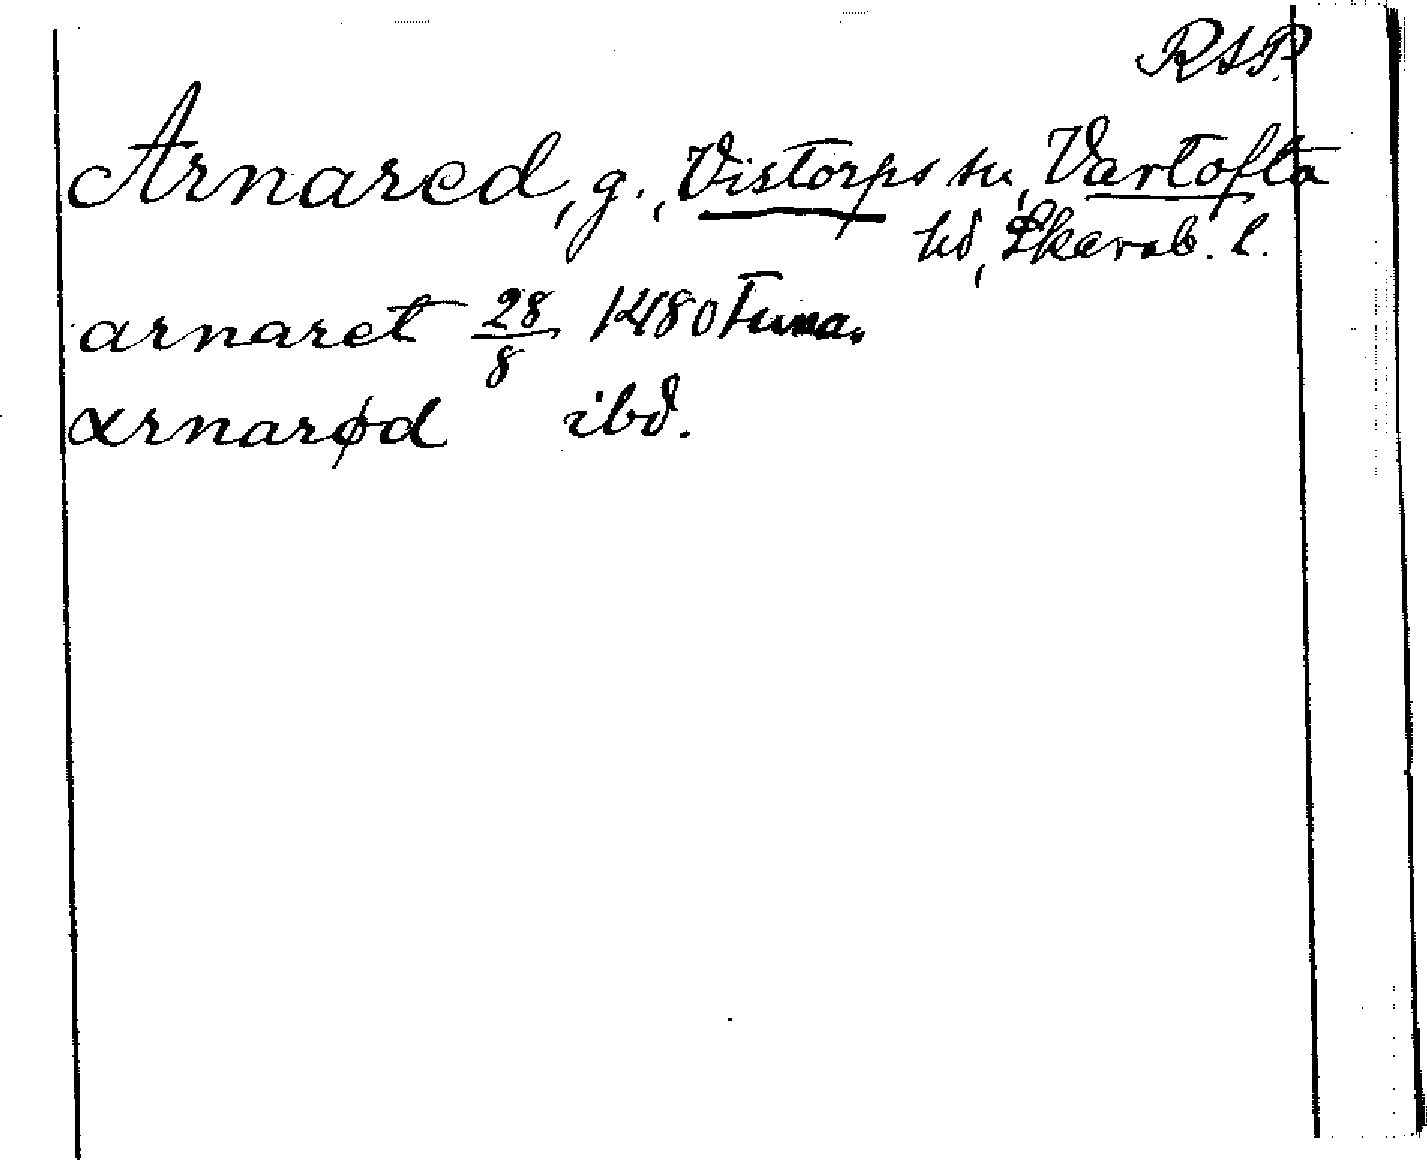 RAP.
Arnared, g., Vistorps sn, Vartofta
hd, Skarab. l.
arnaret 28/8 1480 Tuna.
arnarød ibd.